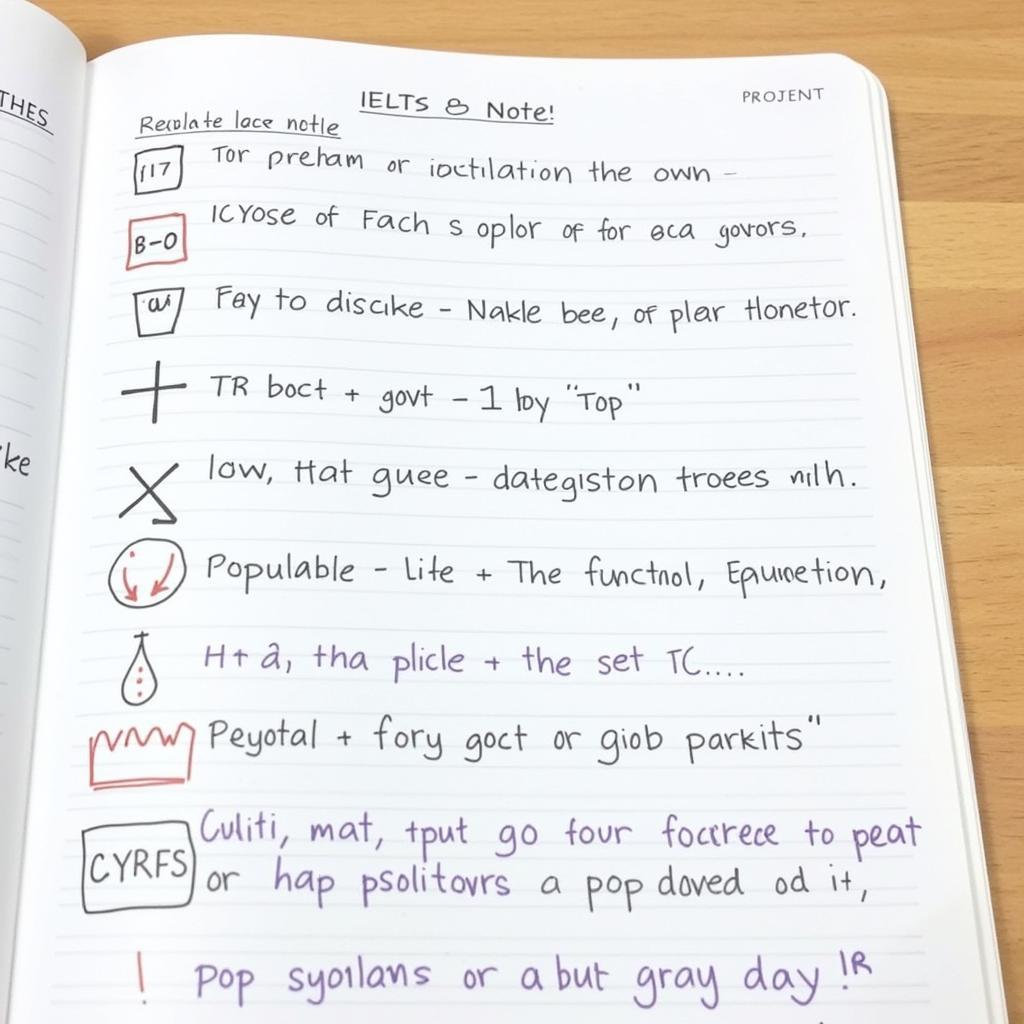 THES
IELTS & Note!
PROJENT
Recolate lace notle
117
Tor preham or ioctilation the own –
B-O
ICYOSE of Fach s oplor of for eca govors.
Fay to discike – Nakle bee, of plar tlonetor.
TR boct + govt – 1 by "Top"
'ke
low, that guee – dategiston troees nilh.
Populable – Life + The functnol, Equnoetion,
H+ a, tha plicle + the set TC....
Peyotal + fory goct or giob parkits"
Culiti, mat, tput go four focrrece to peat
CYRFS
or hap psolitovrs a pop doved od it,
! pop syoilans or a but gray day !R